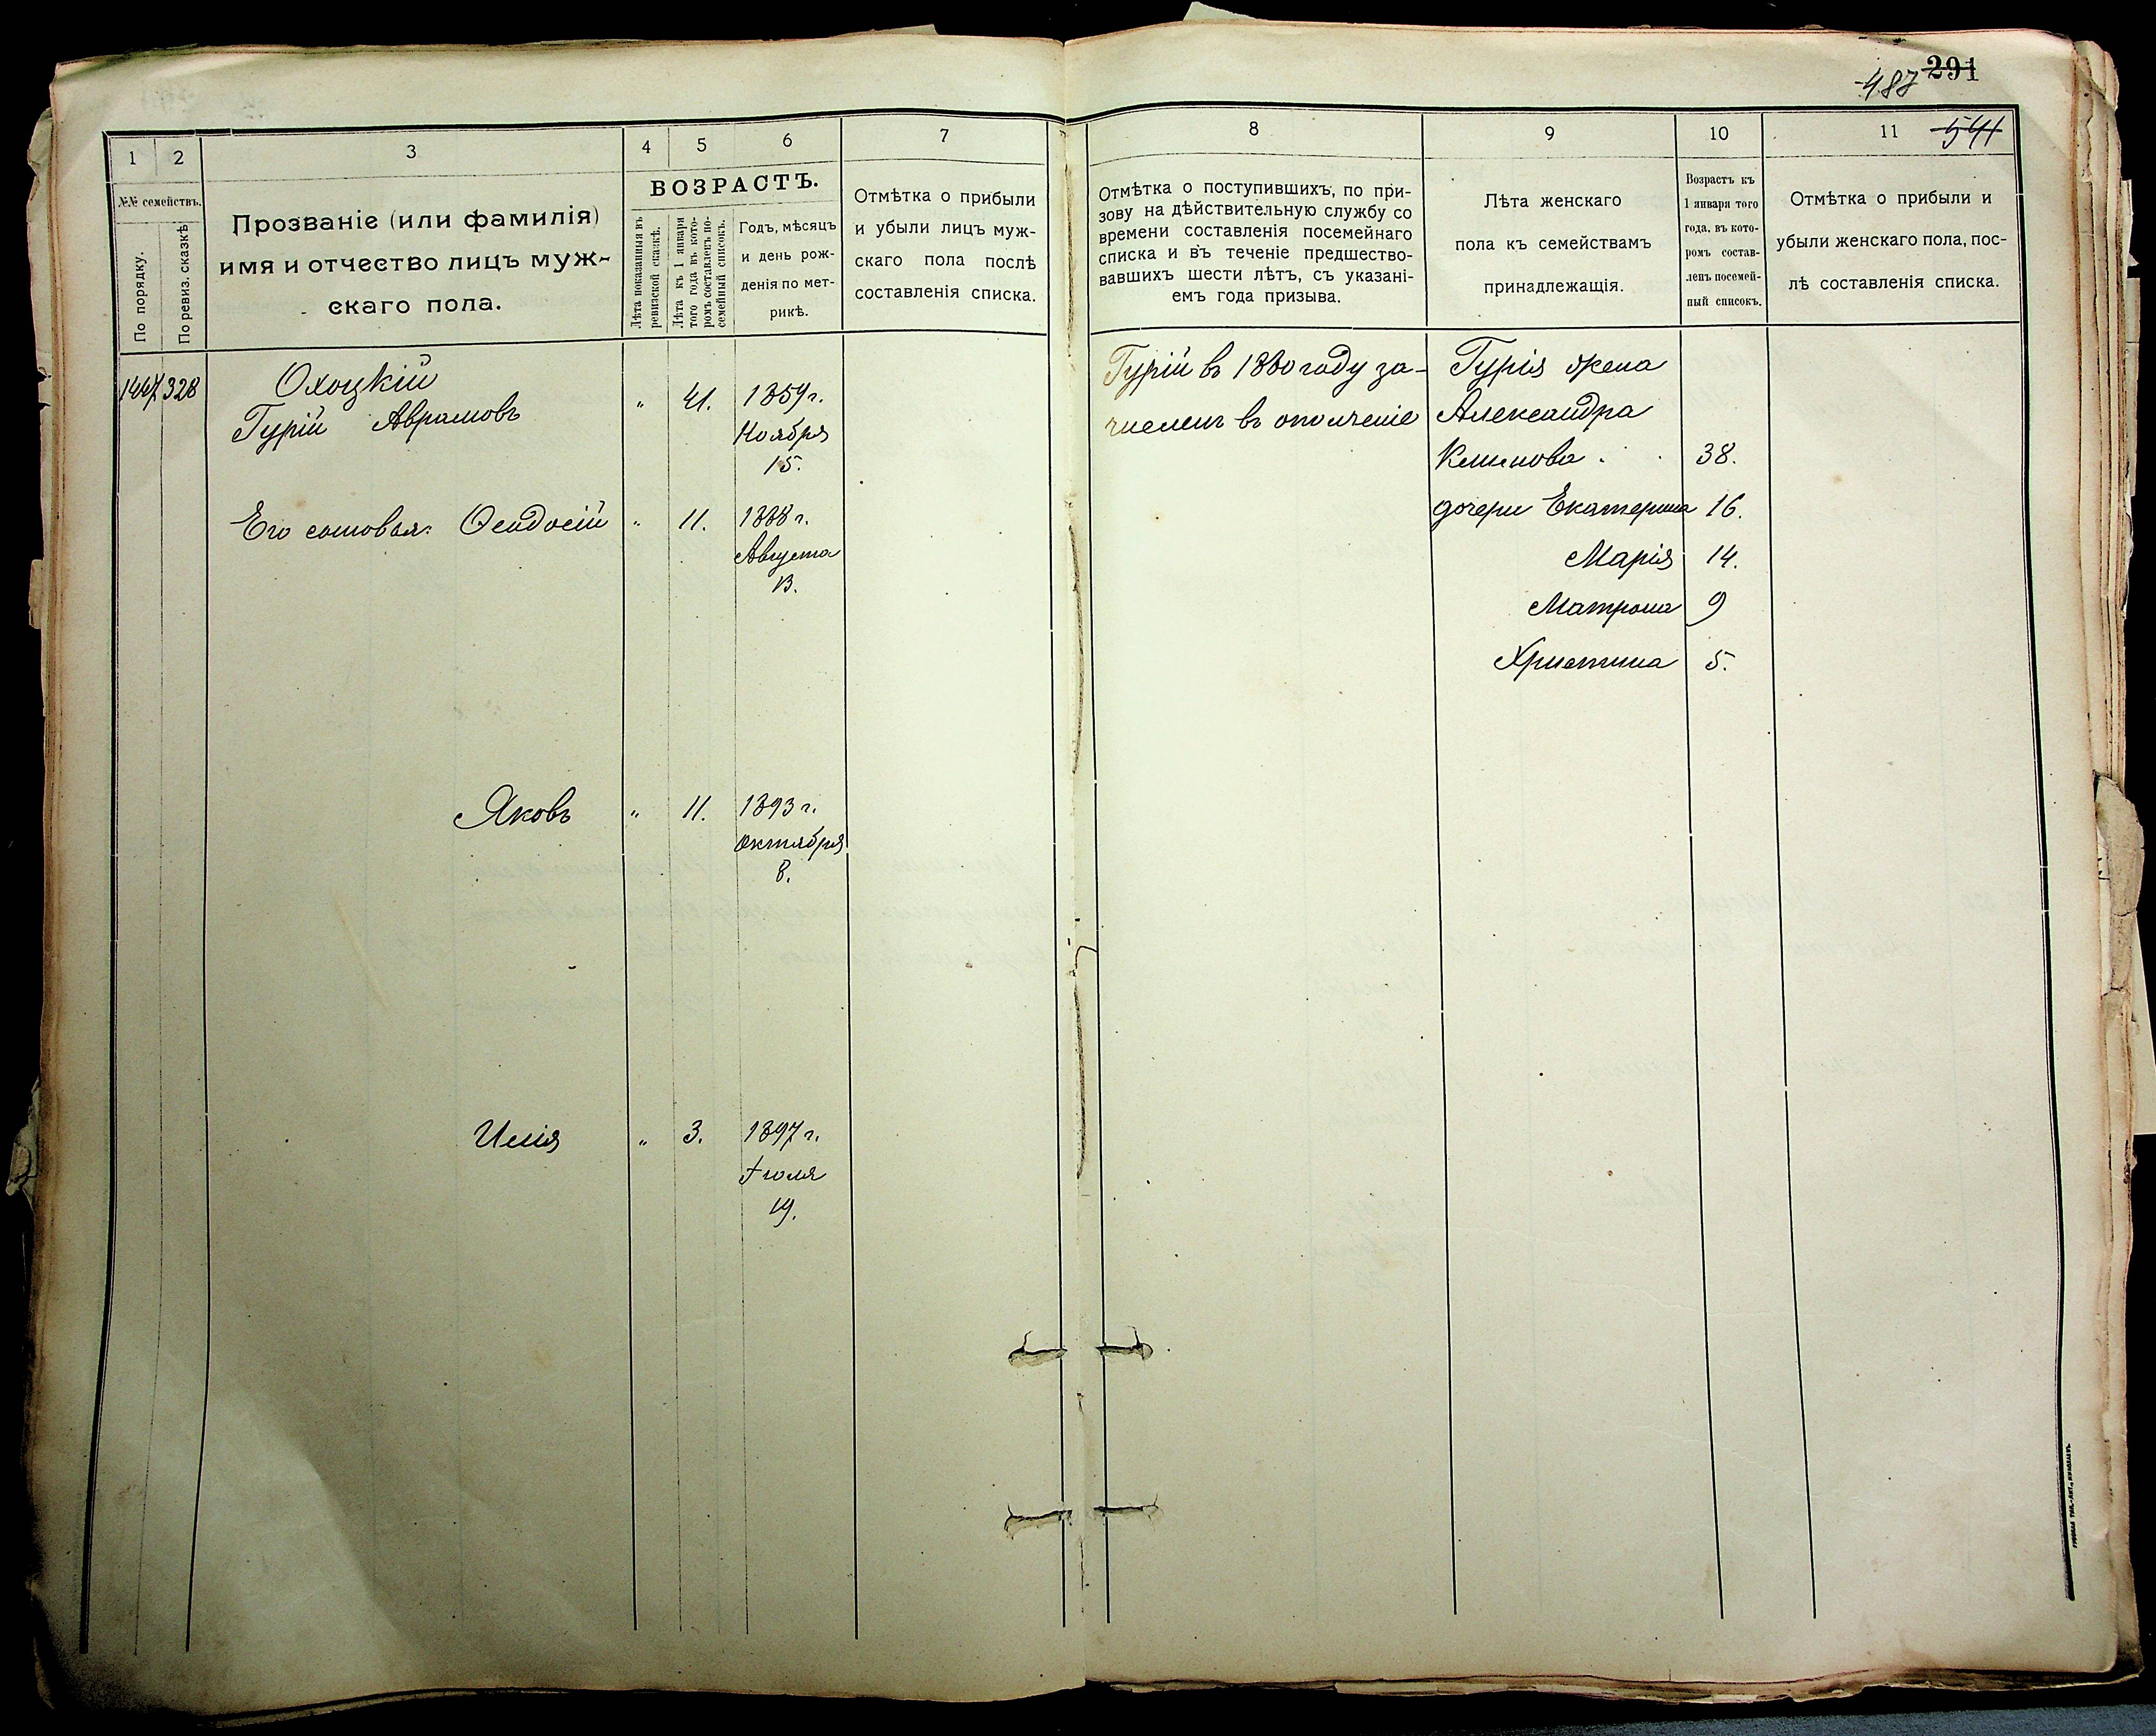 291
487
541
1
2
3
4
5
6
7
8
9
10
11
№№ семействъ.
По порядку.
По ревиз. сказкѣ
Прозваніе (или фамилія)
имя и отчество лицъ муж-
скаго пола.
ВОЗРАСТЪ.
Лѣта показанныя въ
ревизской сказкѣ.
Лѣта къ 1 января
того года въ кото-
ромъ составленъ по-
семейный списокъ.
Годъ, мѣсяцъ
и день рож-
денія по мет-
рикѣ.
Отмѣтка о прибыли
и убыли лицъ муж-
скаго пола послѣ
составленія списка.
Отмѣтка о поступившихъ, по при-
зову на дѣйствительную службу со
времени составленія посемейнаго
списка и въ теченіе предшество-
вавшихъ шести лѣтъ, съ указані-
емъ года призыва.
Лѣта женскаго
пола къ семействамъ
принадлежащія.
Возрастъ къ
1 января того
года, въ кото-
ромъ состав-
ленъ посемей-
ный списокъ.
Отмѣтка о прибыли и
убыли женскаго пола, пос-
лѣ составленія списка.
1447 328 Охоцкій
Гурій Аврамовъ " 41. 1859 г.
Ноября
15.
Его сыновья: Ѳеодосій " 11. 1888 г.
Августа
13.
Яковъ " 11. 1893 г.
Октября
8.
Илія " 3. 1897 г.
Іюля
19.
Гурій въ 1880 году за-
численъ въ ополченіе
Гурія жена
Александра
Климова . . 38.
дочери Екатерина 16.
Марія 14.
Матрона 9
Христина 5.